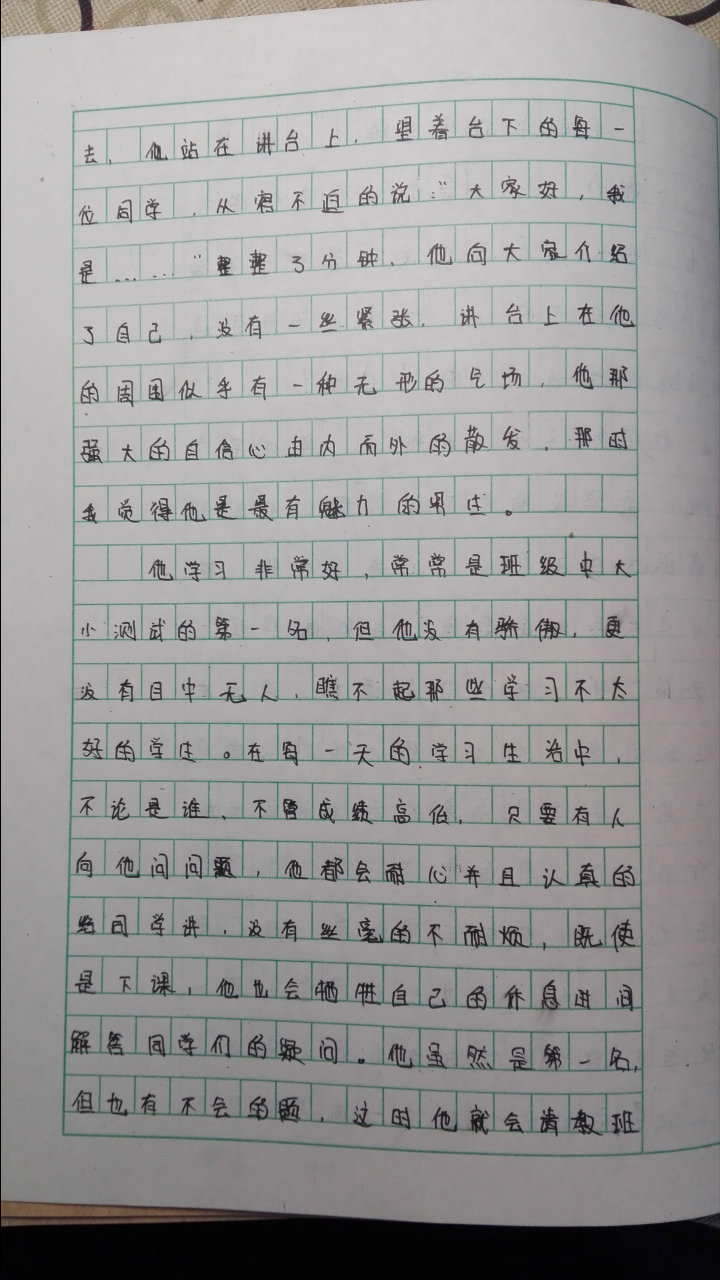 去，他站在讲台上，望着台下的每一
位同学，从容不迫的说：“大家好，我
是……”整整了分钟，他向大家介绍
了自己，没有一丝紧张，讲台上在他
的周围似乎有一种无形的气场，他那
强大的自信心由内而外的散发，那时
我觉得他是最有魅力的男生。
他学习非常好，常常是班级中大
小测试的第一名，但他没有骄傲，更
没有目中无人，瞧不起那些学习不太
好的学生。在每一天的学习生活中，
不论是谁，不管成绩高低，只要有人
向他问问题，他都会耐心并且认真的
给同学讲，没有丝毫的不耐烦，既使
是下课，他也会牺牲自己的休息时间
解答同学们的疑问。他虽然是第一名，
但也有不会的题，这时他就会请教班